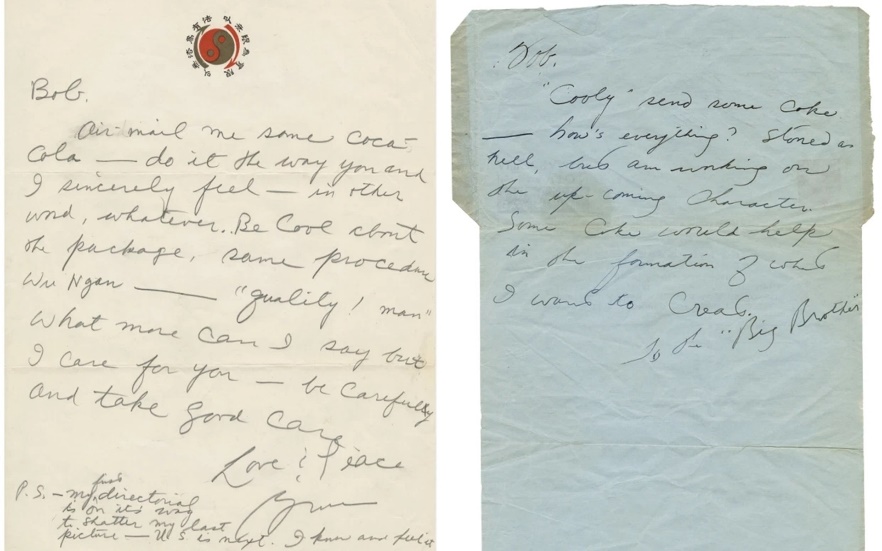 Bob.
Air-mail me some coca-
cola — do it the way you and
I sincerely feel — in other
word, whatever.. Be Cool about
the package, same procedure
Wu Ngan —— "quality! man"
what more can I say but
I care for you — be carefully
and take good care
Love & Peace
P.S. — my first directorial
is on it's way
to shatter my last
picture — U S is next. I know and feel it
Bob.
"Cooly" send some coke
— how's everything? Stoned as
hell, but am working on
the up-coming character.
Some Coke would help
in the formation of what
I want to Creat.
to the "Big Brother"